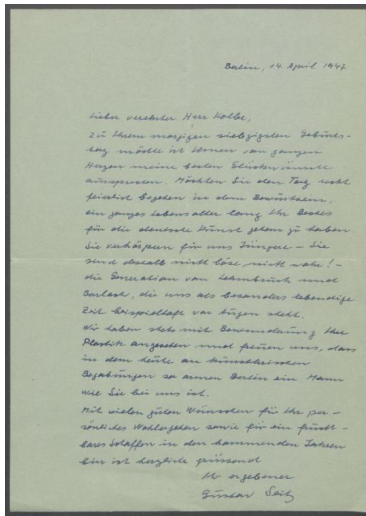 Berlin, 14. April 1947
Lieber verehrter Herr Kolbe,
zu Ihrem morgigen siebzigsten Geburts-
tag möchte ich Ihnen von ganzem
Herzen meine besten Glückwünsche
aussprechen. Möchten Sie den Tag recht
feierlich begehen in dem Bewusstsein,
ein ganzes Lebensalter lang Ihr Bestes
für die deutsche Kunst getan zu haben
Sie verkörpern für uns Jüngere – Sie
sind deshalb nicht böse nicht wahr! –
die Generation von Lehmbruck und
Barlach, die uns als besonders lebendige
Zeit beispielhaft vor Augen steht.
Wir haben stets mit Bewunderung Ihre
Plastik angesehen und freuen uns, dass
in dem heute an künstlerischen
Begabungen so armen Berlin ein Mann
wie Sie bei uns ist.
Mit vielen guten Wünschen für Ihr per-
sönliches Wohlergehen sowie für ein frucht-
bares Schaffen in den kommenden Jahren
bin ich herzlich grüssend
Ihr ergebener
Gustav Seitz